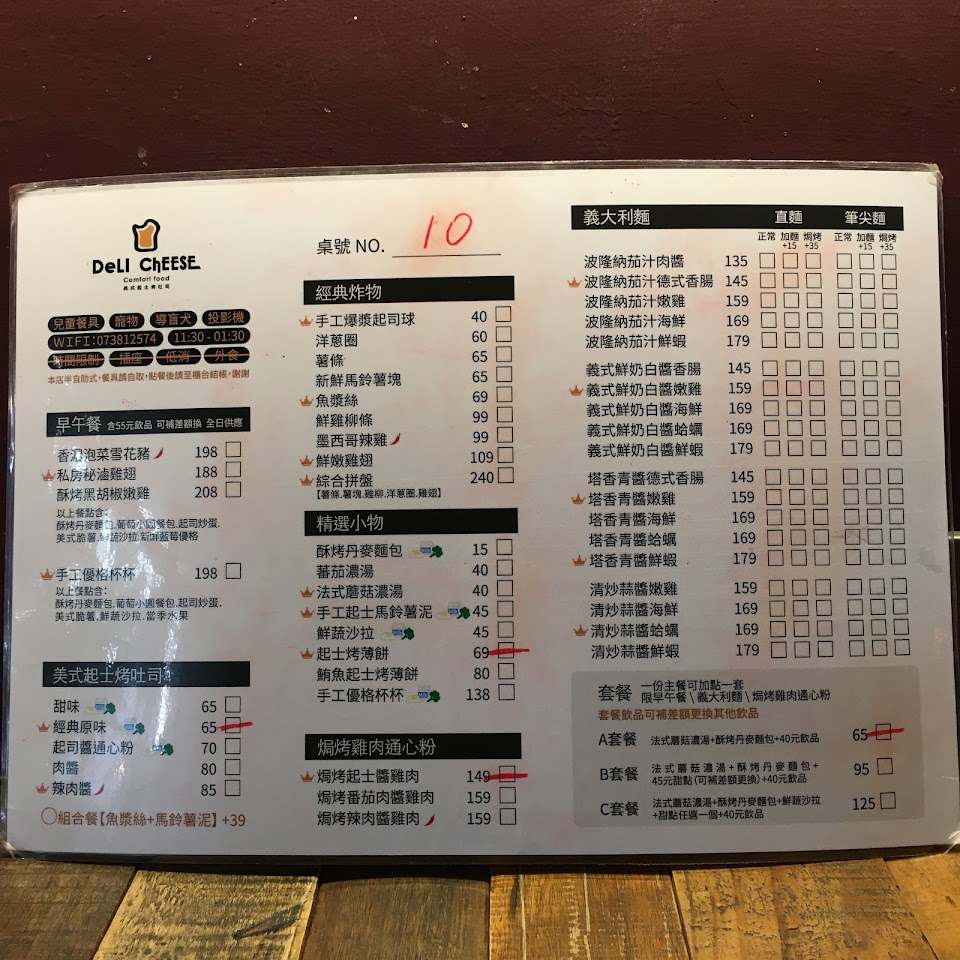 DeLI ChEESE
Comfort food
義式起士烤吐司
兒童餐具 寵物 導盲犬 投影機
WIFI:073812574 11:30 - 01:30
時間限制 插座 低消 外食
本店半自助式,餐具請自取,點餐後請至櫃台結帳,謝謝
早午餐 含55元飲品 可補差額換 全日供應
泡菜雪花豬 198
私房秘滷雞翅 188
酥烤黑胡椒嫩雞 208
以上餐點含:
酥烤丹麥麵包.葡萄小圓餐包.起司炒蛋.
美式脆薯.鮮蔬沙拉.新鮮藍莓優格
手工優格杯杯 198
以上餐點含:
酥烤丹麥麵包.葡萄小圓餐包.起司炒蛋.
美式脆薯.鮮蔬沙拉.當季水果
美式起士烤吐司
甜味 65
經典原味 65
起司醬通心粉 70
肉醬 80
辣肉醬 85
組合餐【魚漿絲+馬鈴薯泥】+39
桌號 NO. 10
經典炸物
手工爆漿起司球 40
洋蔥圈 60
薯條 65
新鮮馬鈴薯塊 65
魚漿絲 69
鮮雞柳條 99
墨西哥辣雞 99
鮮嫩雞翅 109
綜合拼盤 240
【薯條.薯塊.雞柳.洋蔥圈.雞翅】
精選小物
酥烤丹麥麵包 15
蕃茄濃湯 40
法式蘑菇濃湯 40
手工起士馬鈴薯泥 45
鮮蔬沙拉 45
起士烤薄餅 69
鮪魚起士烤薄餅 80
手工優格杯杯 138
焗烤雞肉通心粉
焗烤起士醬雞肉 149
焗烤番茄肉醬雞肉 159
焗烤辣肉醬雞肉 159
義大利麵 直麵 筆尖麵
正常 加麵 焗烤 正常 加麵 焗烤
+15 +35 +15 +35
波隆納茄汁肉醬 135
波隆納茄汁德式香腸 145
波隆納茄汁嫩雞 159
波隆納茄汁海鮮 169
波隆納茄汁鮮蝦 179
義式鮮奶白醬香腸 145
義式鮮奶白醬嫩雞 159
義式鮮奶白醬海鮮 169
義式鮮奶白醬蛤蠣 169
義式鮮奶白醬鮮蝦 179
塔香青醬德式香腸 145
塔香青醬嫩雞 159
塔香青醬海鮮 169
塔香青醬蛤蠣 169
塔香青醬鮮蝦 179
清炒蒜醬嫩雞 159
清炒蒜醬海鮮 169
清炒蒜醬蛤蠣 169
清炒蒜醬鮮蝦 179
套餐 一份主餐可加點一套
限早午餐 \ 義大利麵 \ 焗烤雞肉通心粉
套餐飲品可補差額更換其他飲品
A套餐 法式蘑菇濃湯+酥烤丹麥麵包+40元飲品 65
B套餐 法式蘑菇濃湯+酥烤丹麥麵包+
45元甜點(可補差額更換)+40元飲品 95
C套餐 法式蘑菇濃湯+酥烤丹麥麵包+鮮蔬沙拉
+甜點任選一個+40元飲品 125